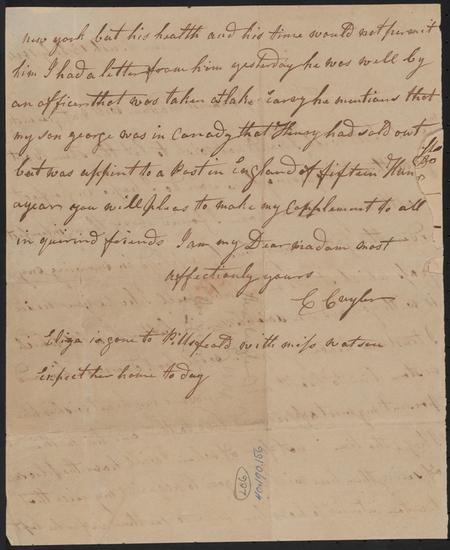 new york but his health and his time would not permit
him I had a letter from him yesterday he was well by
an officer that was taken at lake Earey he mentions that
my son george was in Cannady that Henry had sold out
but was appint to a Post in England of fifteen Hun
a year you will pleas to make my Complement to all
in quirind friends I am my Dear madam most
affectionly yours
C Cuyler
Eliza is gone to with miss watson
Expect her home to day
206